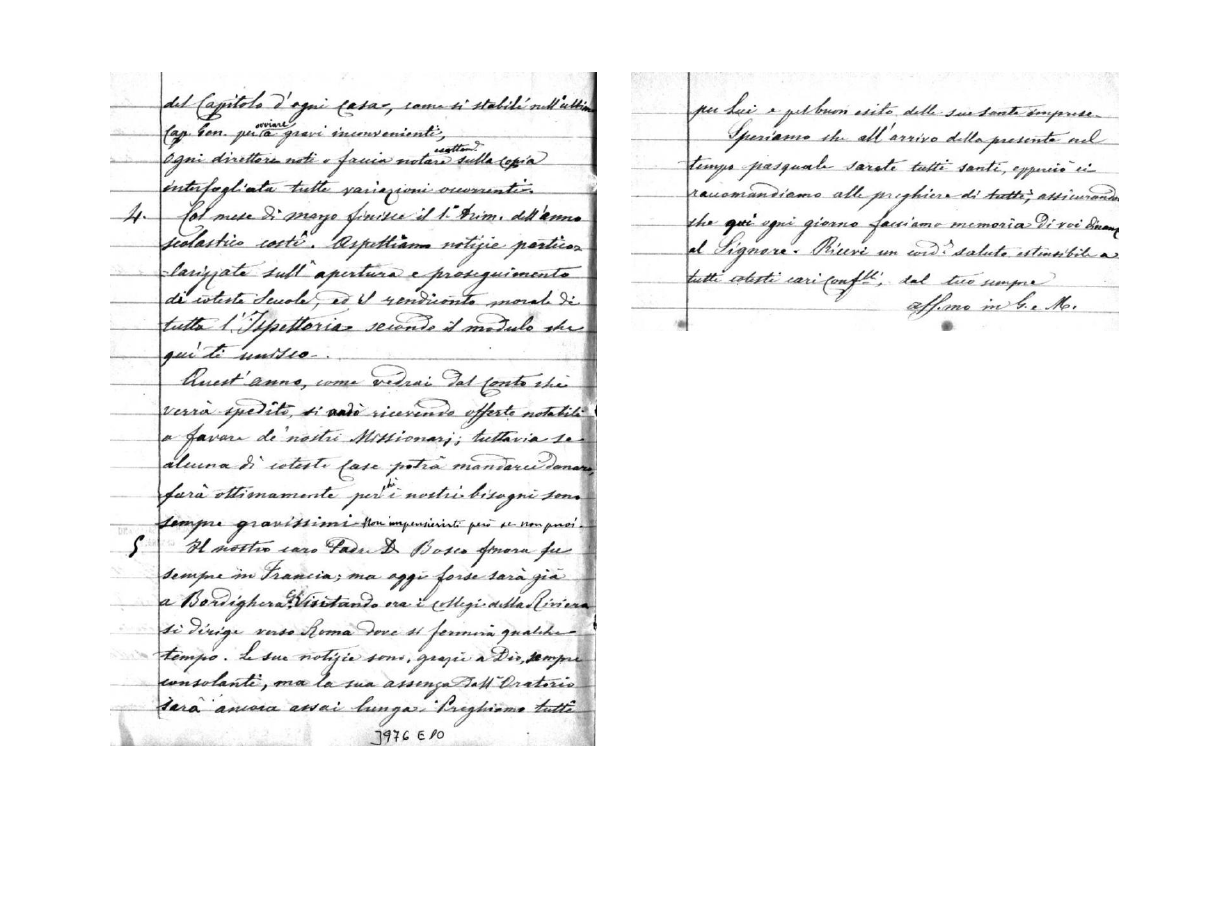 del Capitolo d'ogni Casa, come si stabilì nell'ultimo
Cap. Gen. per ovviare a gravi inconvenienti,
Ogni direttore noti o faccia notare esattam sulla copia
interfogliata tutte variazioni occorrenti.
4. Col mese di marzo finisce il 1° trim. dell'anno
scolastico costì. Aspettiamo notizie partico-
larizzate sull'apertura e proseguimento
di coteste Scuole, ed il rendiconto morale di
tutta l'Ispettoria secondo il modulo che
qui ti unisco.
Quest'anno, come vedrai dal conto che
verrà spedito, si andò ricevendo offerte notabili
a favore de' nostri Missionarj; tuttavia se
alcuna di coteste Case potrà mandarci danaro,
farà ottimamente perchè i nostri bisogni sono
sempre gravissimi Non impensierirti però se non puoi.
5 Il nostro caro Padre D. Bosco finora fu
sempre in Francia; ma oggi forse sarà già
a Bordighera. Visitando ora i collegi della Riviera
si dirige verso Roma dove si fermerà qualche
tempo. Le sue notizie sono, grazie a Dio, sempre
consolanti, ma la sua assenza dall'Oratorio
sarà ancora assai lunga. Preghiamo tutti
J976 E 10
per Lui e pel buon esito delle sue sante imprese.
Speriamo che all'arrivo della presente nel
tempo pasquale sarete tutti santi, epperciò ci
raccomandiamo alle preghiere di tutti, assicurando
che qui ogni giorno facciamo memoria di voi dinanzi
al Signore. Ricevi un cord.e saluto estensibile a
tutti cotesti cari Conflli, dal tuo sempre
aff.mo in G. e M.